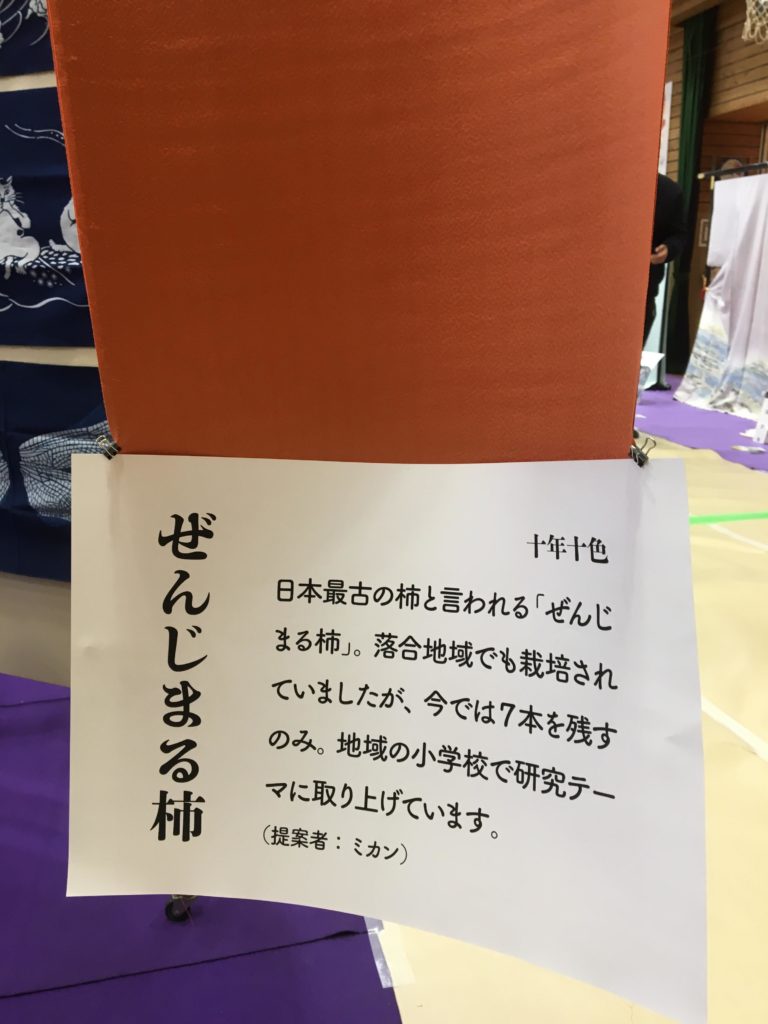 ぜんじまる柿
十年十色
日本最古の柿と言われる「ぜんじ
まる柿」。落合地域でも栽培され
ていましたが、今では7本を残す
のみ。地域の小学校で研究テー
マに取り上げています。
（提案者：ミカン）